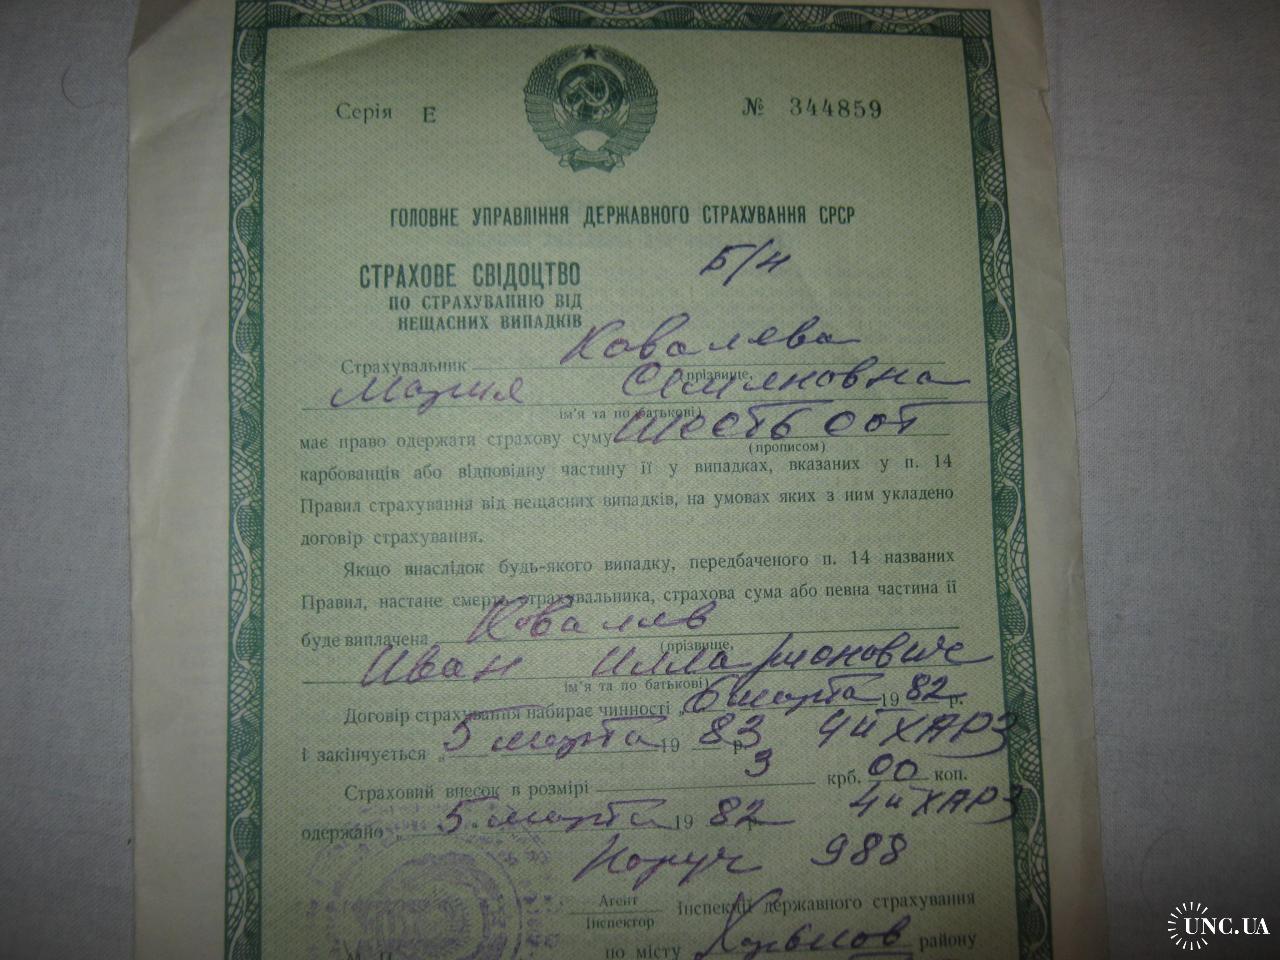 Серія Е № 344859
ГОЛОВНЕ УПРАВЛІННЯ ДЕРЖАВНОГО СТРАХУВАННЯ СРСР
Б/н
СТРАХОВЕ СВІДОЦТВО
ПО СТРАХУВАННЮ ВІД
НЕЩАСНИХ ВИПАДКІВ
Страхувальник Ковалева
(прізвище,
Мария Семяновна
ім'я та по батькові)
має право одержати страхову суму шесть сот
(прописом)
карбованців або відповідну частину її у випадках, вказаних у п. 14
Правил страхування від нещасних випадків, на умовах яких з ним укладено
договір страхування.
Якщо внаслідок будь-якого випадку, передбаченого п. 14 названих
Правил, настане смерть страхувальника, страхова сума або певна частина її
буде виплачена Ковалев
(прізвище,
Иван Илларионович
ім'я та по батькові)
Договір страхування набирає чинності „6 марта 1982 р.
і закінчується „5 марта 1983 р. 4ч ХАРЗ
Страховий внесок в розмірі 3 крб. 00 коп.
одержано „5 марта 1982 4ч ХАРЗ
988
Агент
Інспектор
Інспекції державного страхування
по місту району
UNC.UA